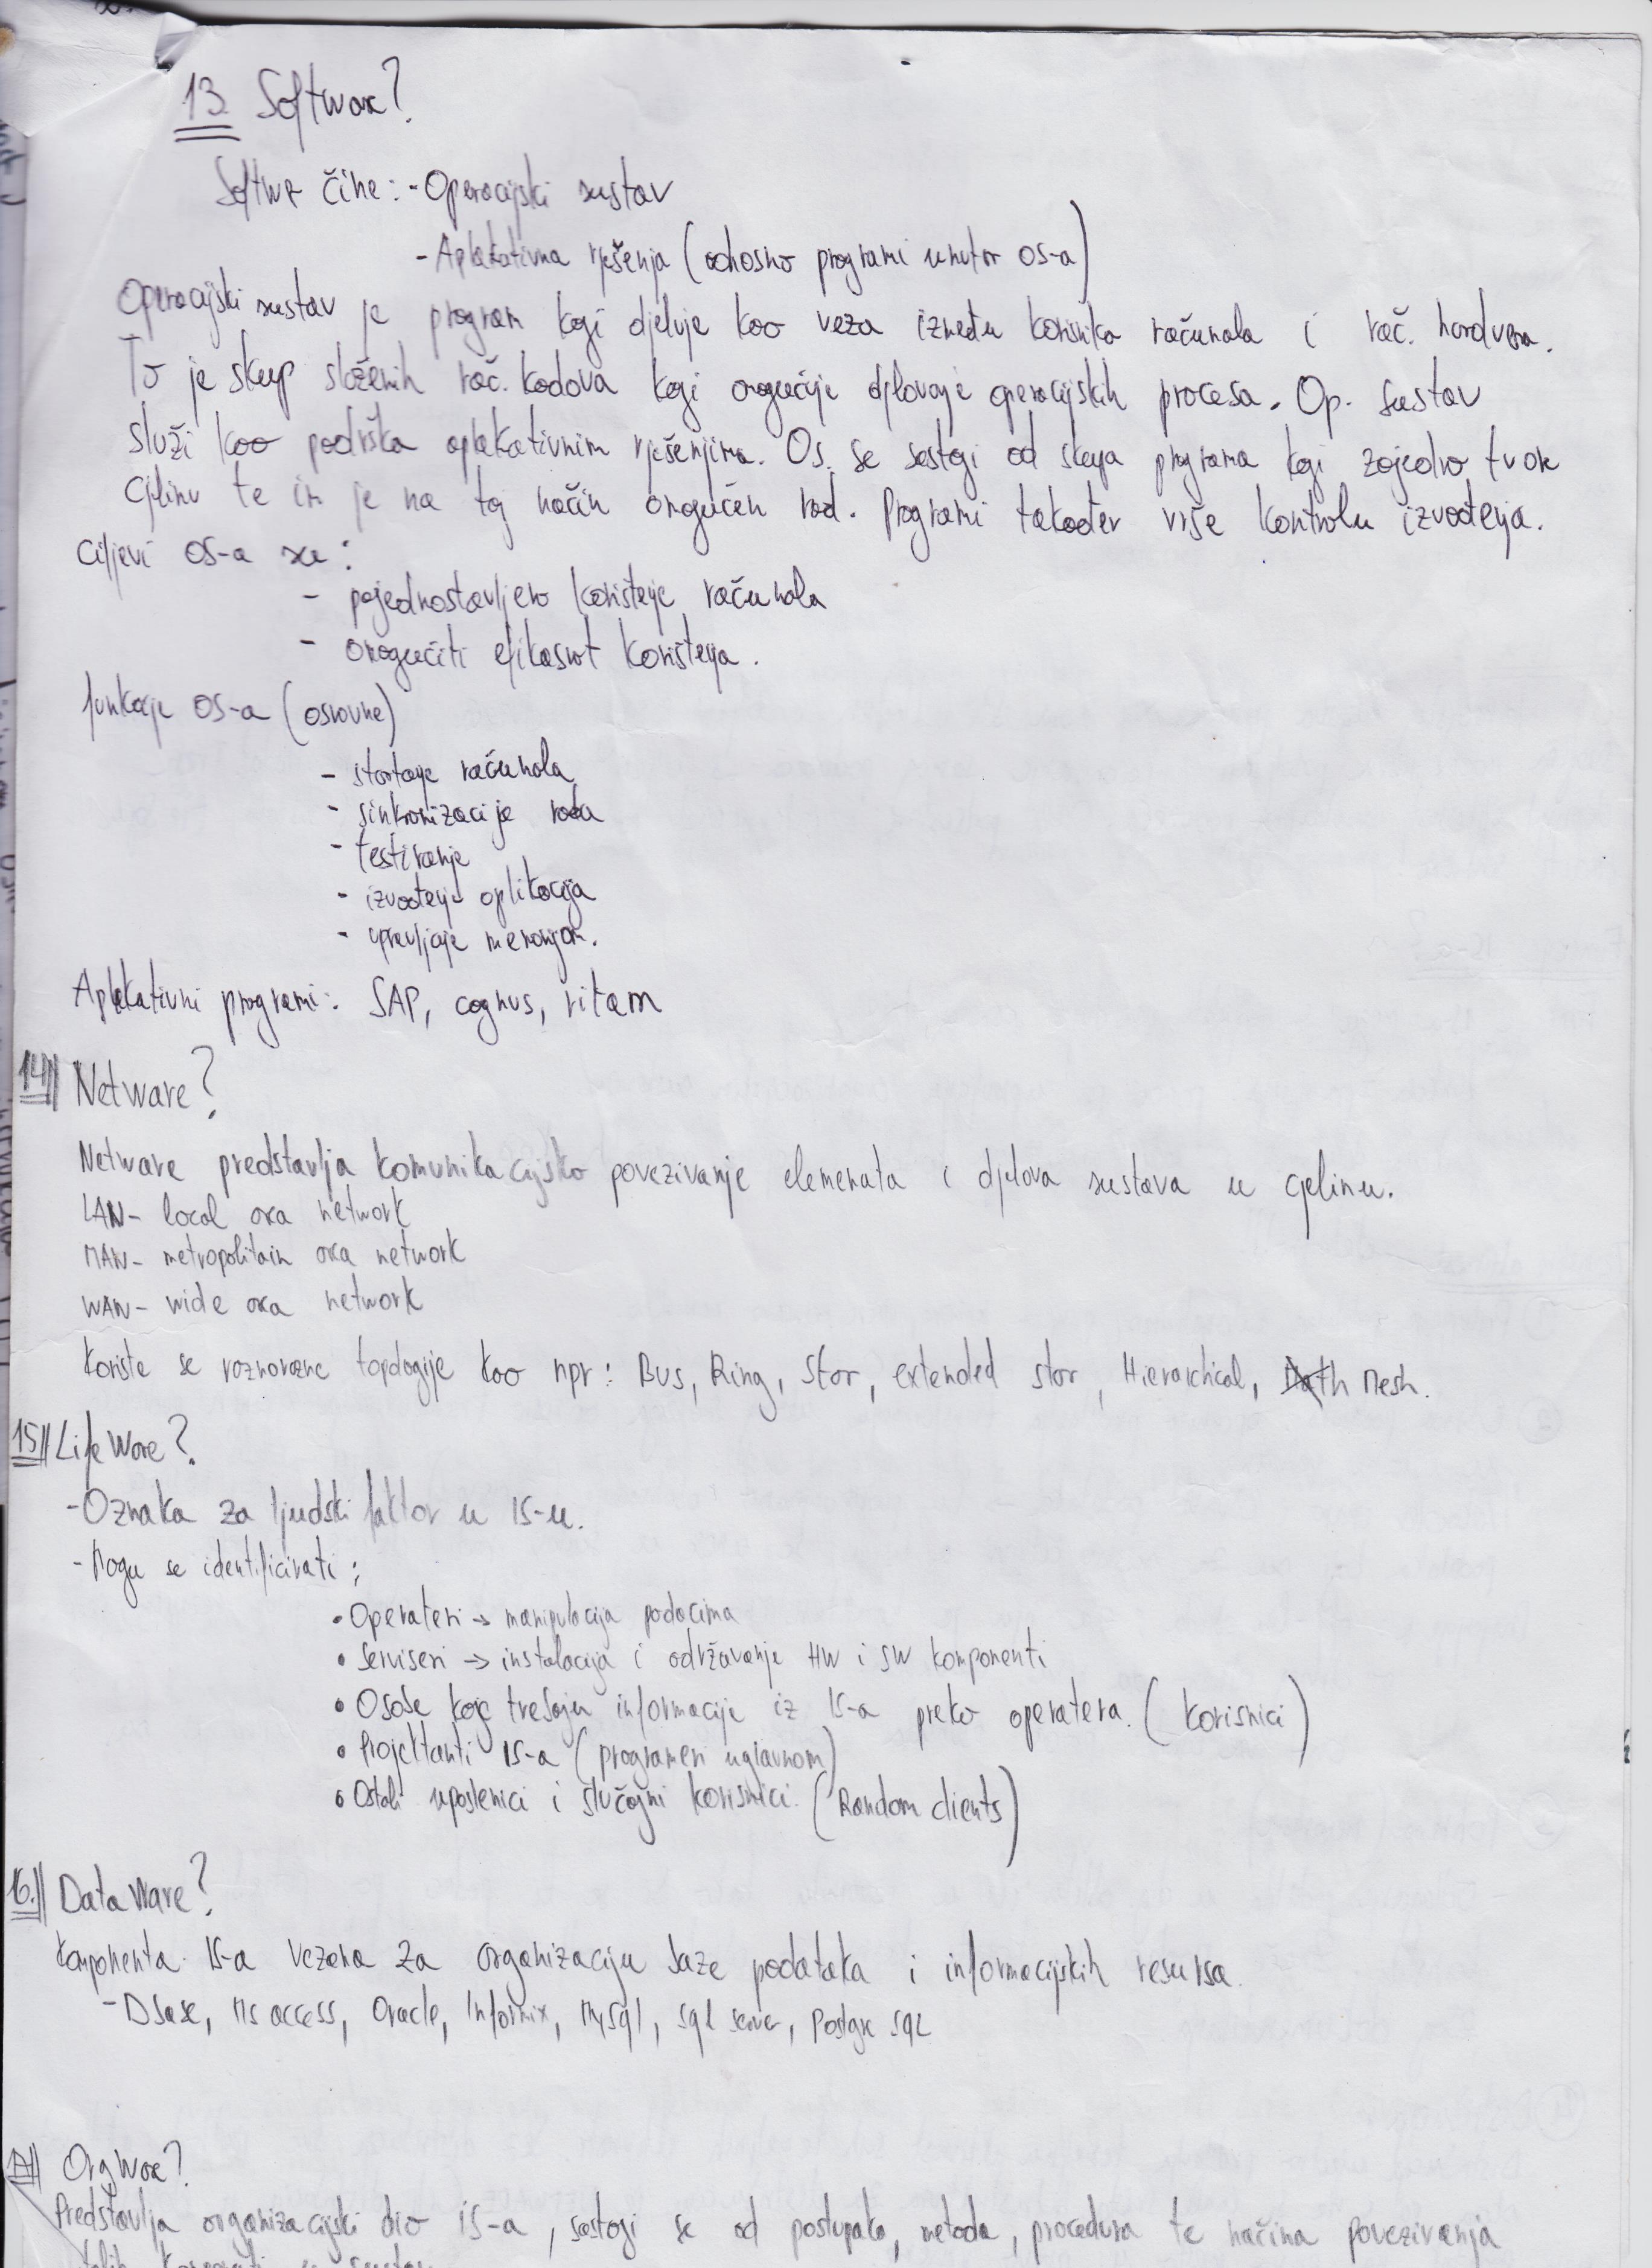 13. Software?
Softwer čine: - Operacijski sustav
- Aplikativna rješenja (odnosno programi unutar OS-a)
Operacijski sustav je program koji djeluje kao veza između korisnika računala i rač. hardvera.
To je skup složenih rač. kodova koji omogućuje djelovanje operacijskih procesa. Op. sustav
služi kao podrška aplikativnim rješenjima. Os. se sastoji od skupa programa koji zajedno tvore
cjelinu te im je na taj način omogućen rad. Programi također vrše kontrolu izvođenja.
Ciljevi OS-a su:
- pojednostavljeno korištenje računala
- omogućiti efikasnost korištenja.
funkcije OS-a (osnovne)
- startanje računala
- sinkronizacije rada
- testiranje
- izvođenje aplikacija
- upravljanje memorijom.
Aplikativni programi: SAP, cognus, ritam
14 Netware?
Netware predstavlja komunikacijsko povezivanje elemenata i djelova sustava u cjelinu.
LAN- local area network
MAN- metropolitain area network
WAN- wide area network
Koriste se raznorazne topologije kao npr: Bus, Ring, Star, extended star, Hierarchical, Mesh.
15 LifeWare?
- Oznaka za ljudski faktor u IS-u.
- Mogu se identificirati:
• Operateri → manipulacija podacima
• Serviseri → instalacija i održavanje HW i SW komponenti
• Osobe koje trebaju informacije iz IS-a preko operatera. (Korisnici)
• Projektanti IS-a (programeri uglavnom)
• Ostali uposlenici i slučajni korisnici. (Random clients)
16. DataWare?
Komponenta IS-a vezana za organizaciju baze podataka i informacijskih resursa.
- Dbase, Ms access, Oracle, Informix, MySql, sql server, Postgre SQL
17 OrgWare?
Predstavlja organizacijski dio IS-a, sastoji se od postupaka, metoda, procedura te načina povezivanja